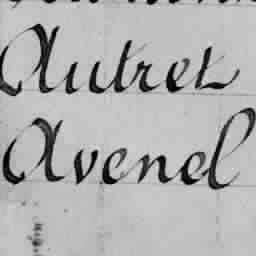 Autret
Avenel